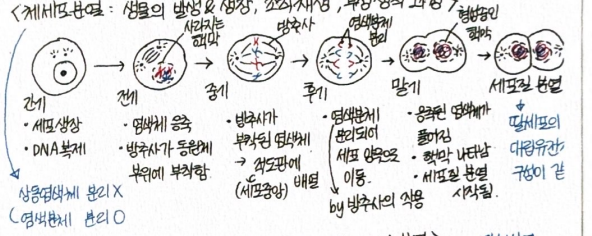 <체세포분열 : 생물의 발생 & 생장, 조직재생,
사라지는 핵막
방추사
염색분체 분리
형성중인 핵막
간기
• 세포생장
• DNA복제
전기
• 염색체 응축
• 방추사가 동원체
부위에 부착함
중기
• 방추사가
부착된 염색체
→ 적도판에
(세포중앙) 배열
후기
• 염색분체
분리되어
세포 양극으로
이동.
by 방추사의 작용
말기
• 응축된 염색체가
풀어짐
• 핵막 나타남
• 세포질 분열
시작됨.
세포질 분열
딸세포의
대립유전자
구성이 같
상동염색체 분리 X
염색분체 분리 O